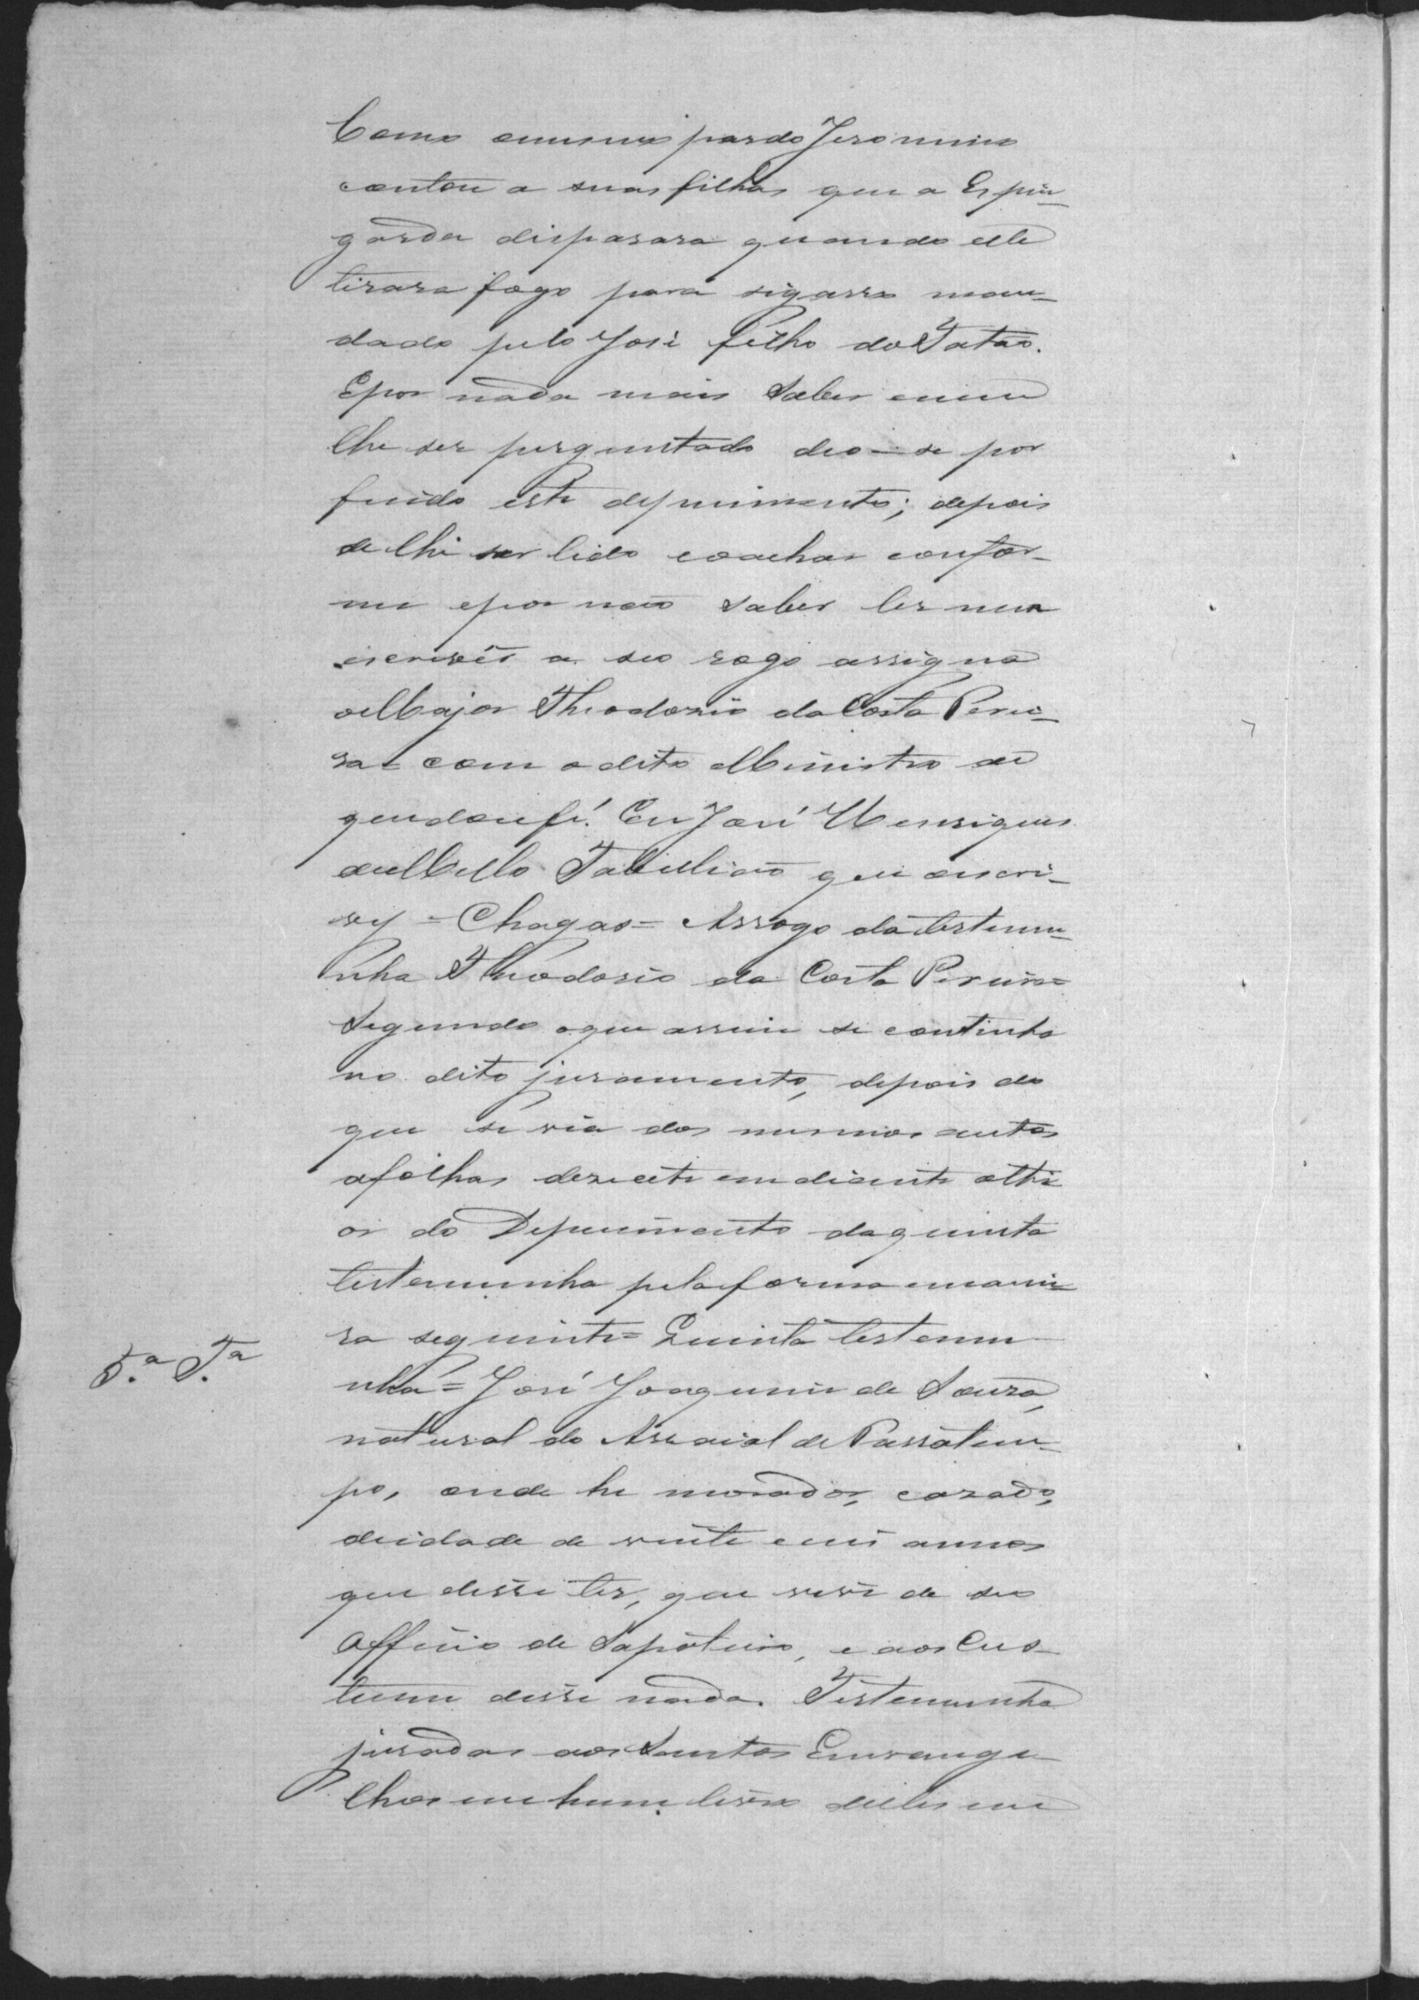 Como omesmo pardo Jeronimo
contou a suas filhas que a Espin-
garda disparara quando elle
tirara fogo para sigarro man-
dado pelo José filho do Tatao.
Epor nada mais saber enem
lhe ser perguntado deo-se por
findo este depuimento; depois
de lhe ser lido eoachar confor-
me epor não saber ler nem
escrever a seo rogo assigna
oMajor Theodozio da Costa Perei-
ra com o dito Ministro de
quedoufé. Eu José Henriques
deMello Tabellião que oescri-
vy = Chagas = Arrogo da testemu-
nha Theodosio da Costa Pereira=
Segundo oque assim se continha
no dito juramento, depois do
que se via dos mesmos autos
afolhas dezesete emdiante athe
os do Depuimento daquinta
testemunha pelaforma emanei-
ra seguinte= Quinta testemu-
5.ª T.ª
nha = José Joaquim de Souza,
natural do Arraial de Passatem-
po, onde he morador, cazado,
deidade de vinte eseis annos
que disse ter, que vive de seo
Officio de Sapateiro, e aos Cus-
tume disse nada. Testemunha
jurada aos Santos Envange-
lhos em hum livro delles em